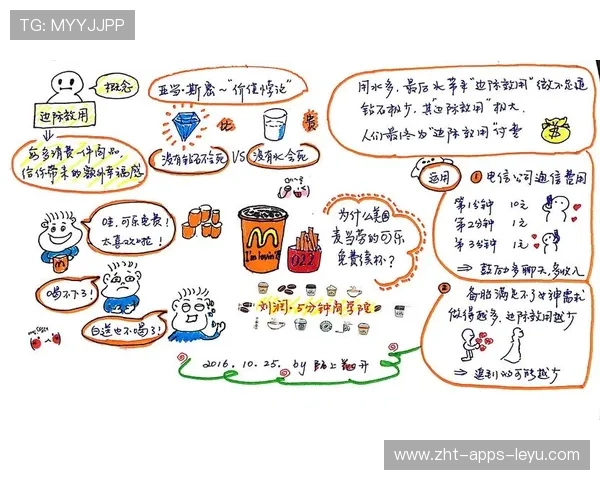 TG: MYYJJPP
概念
边际效用
每多消费一件商品
给你带来的额外幸福感
亚当·斯密~"价值悖论"
比
贵
没有钻石不死 VS 没有水会死
用水多,最后水带来"边际效用"微不足道
钻石极少,其"边际效用"极大.
人们最终为"边际效用"付费
哇,可乐免费!
太喜欢啦!
喝不下了!
白送也不喝了!
I'm lovin' it
为什么美国
麦当劳的可乐
免费续杯?
刘润·5分钟商学院
2016.10.25. by 陌上花开
运用
① 电信公司通信费用
第1分钟 10元
第2分钟 1元
第3分钟 1元
⇒ 鼓励多聊天,多收入
② 备胎满足不了女神需求
做得越多,边际效用越少
⇒ 追到的可能越少
www.zht-apps-leyu.com